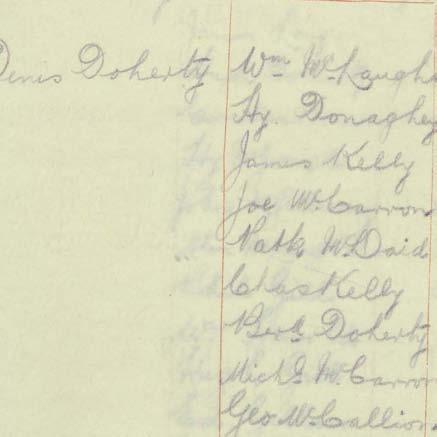 Denis Doherty Wm McLaugh
Hy. Donaghey
James Kelly
Joe McCarron
Patk McDaid
Chas Kelly
Bernd Doherty
Michl McCarron
Geo McCallion